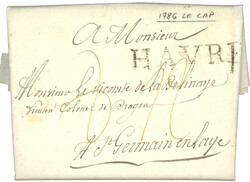 1786 LE CAP
A Monsieur
HAVRE
Monsieur le vicomte de la
Lieutent Colonel de Dragon
A St Germain en laye